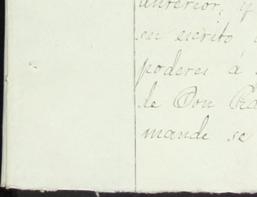 anterior, y
su escrito
poderes á
de Don Ped
mande se